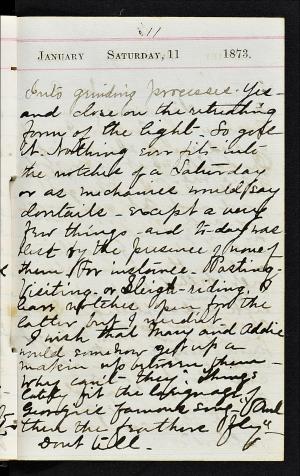 11
JANUARY SATURDAY, 11 1873.
into grinding processes. Yes-
and close on the retreating
form of the light. So goes
it. Nothing ever fits into
the notches of a Saturday
or as mechanics would say
dovetails - except a very
few things - and to-day was
lost by the presence of none of
them. For instance - Pasting-
Visiting - or Sleigh-riding. I
have notches open for the
latter but
I wish that Mary and Addie
would somehow get up a
makin up between them -
why can't they. Things
lately fit the language of
Georgie's famous song - "And
then the feathers fly"
Don't tell.